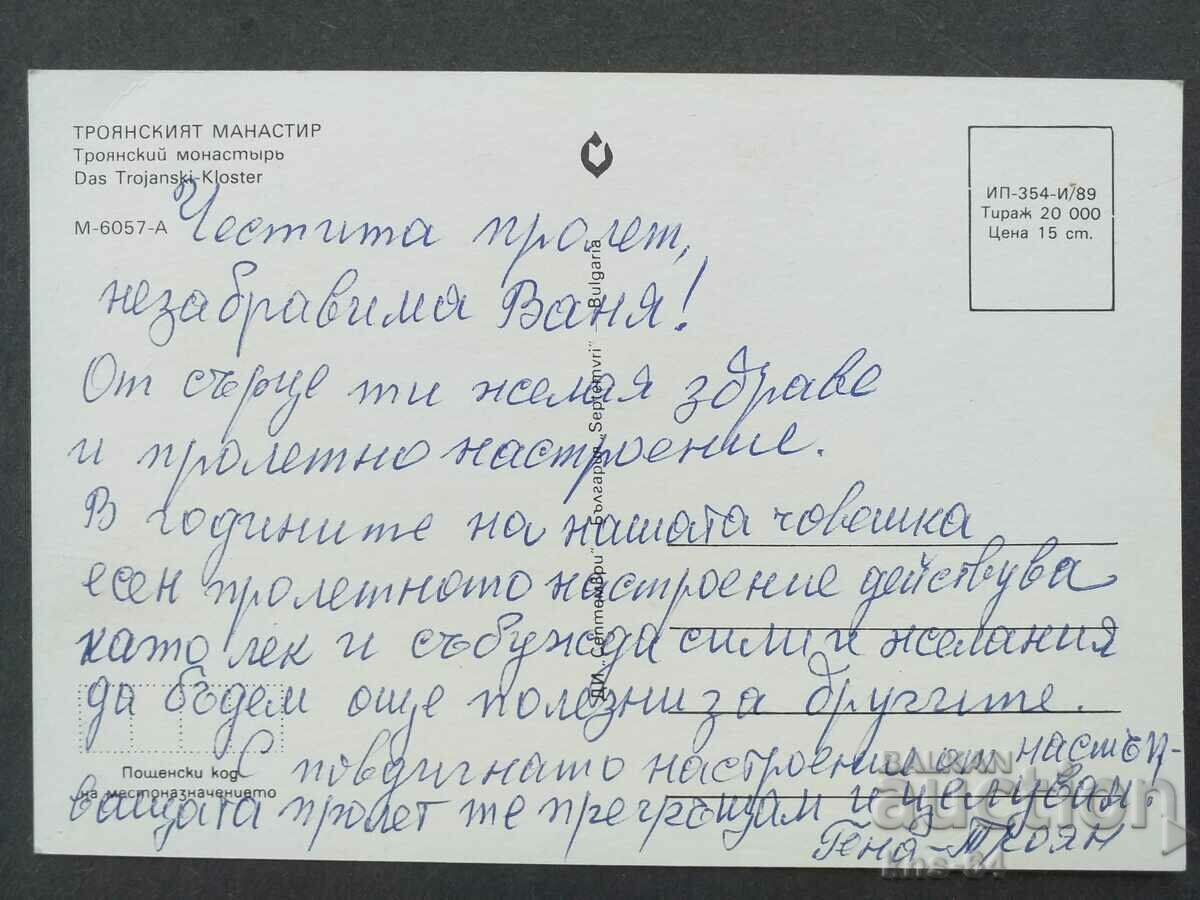 ТРОЯНСКИЯТ МАНАСТИР
Троянский монастырь
Das Trojanski-Kloster
М-6057-А
ИП-354-И/89
Тираж 20 000
Цена 15 ст.
Честита пролет,
незабравима Ваня!
От сърце ти желая здраве
и пролетно настроение.
В годините на нашата човешка
есен пролетното настроение действува
като лек и събужда сили и желания
да бъдем още полезни за другите.
С повдигнато настроение от настъп-
ващата пролет те прегръщам и целувам.
Гена - Троян
ДИ „Септември" България „Septemvri" – Bulgaria
Пощенски код
на местоназначението
BALKAN
auction
kns-64